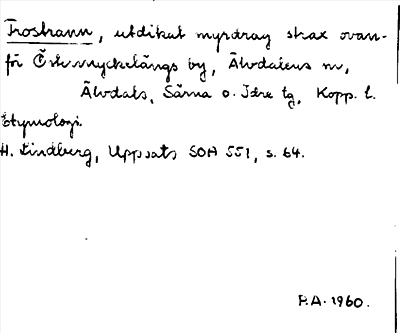 Trostrann, utdikat myrdrag strax ovan-
för Östermyckelängs by, Älvdalens sn,
Älvdals, Särna o. Idre tg, Kopp. l.
Etymologi.
H. Lindberg, Uppsats SOA 551, s. 64.
P.A. 1960.